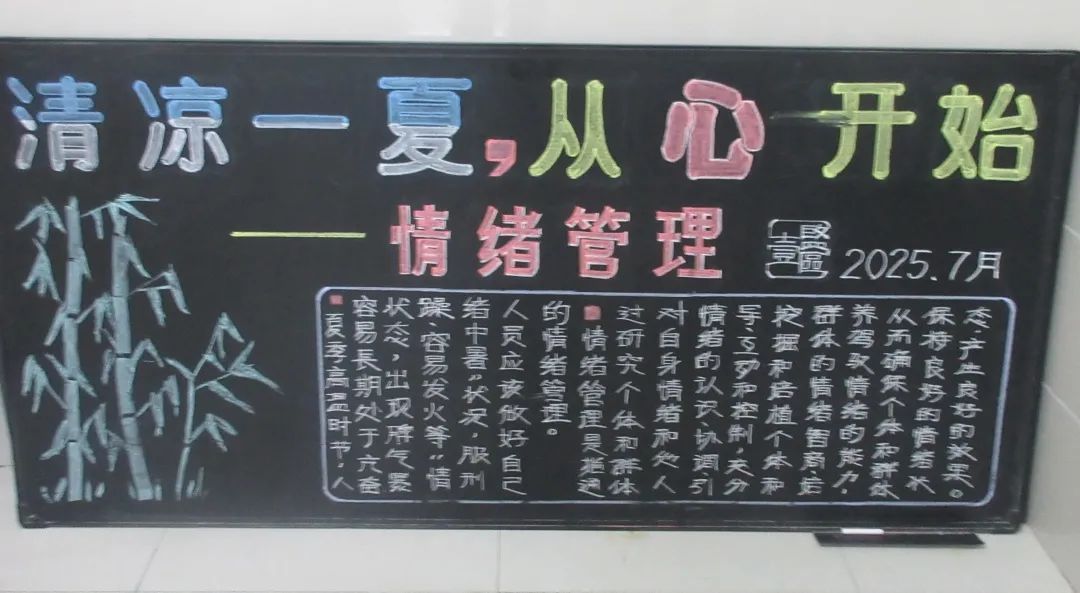 清凉一夏,从心开始
——情绪管理
2025.7月
夏季高温时节,人
容易長期处于亢奋
状态,出现脾气暴
躁、容易发火等"情
绪中暑"状况,服刑
人员应该做好自己
的情绪管理。
情绪管理是指通
过研究个体和群体
对自身情绪和他人
情绪的认识、协调、引
导、互动和控制,充分
挖掘和培植个体和
群体的情绪智商、培
养驾驭情绪的能力,
从而确保个体和群体
保持良好的情绪状
态,产生良好的效果。